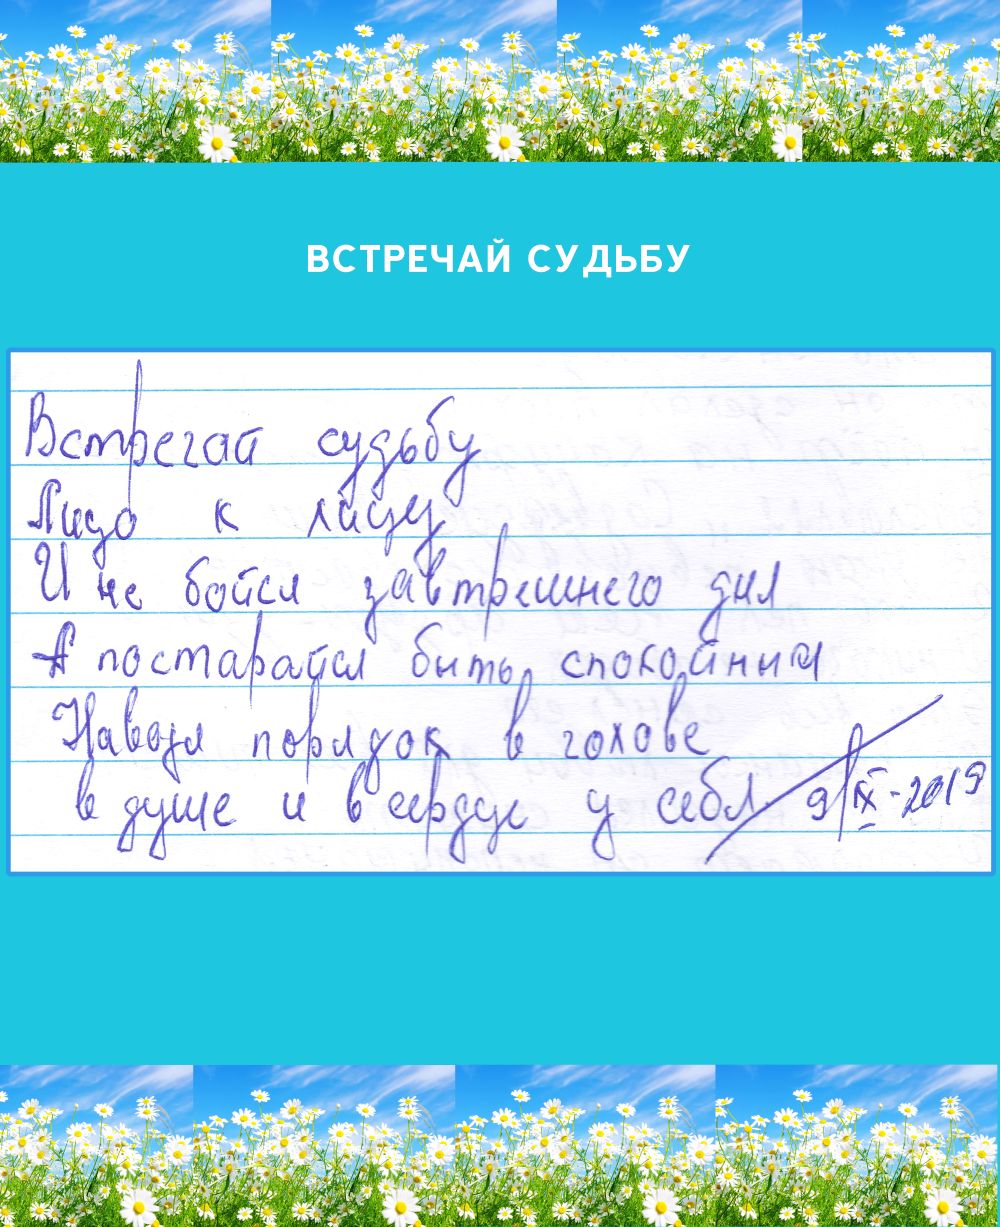 ВСТРЕЧАЙ СУДЬБУ
Встречай судьбу
Лицо к лицу
И не бойся завтрешнего дня
А постарайся быть спокойным
Наводя порядок в голове
в душе и в сердце у себя 9/IX-2019